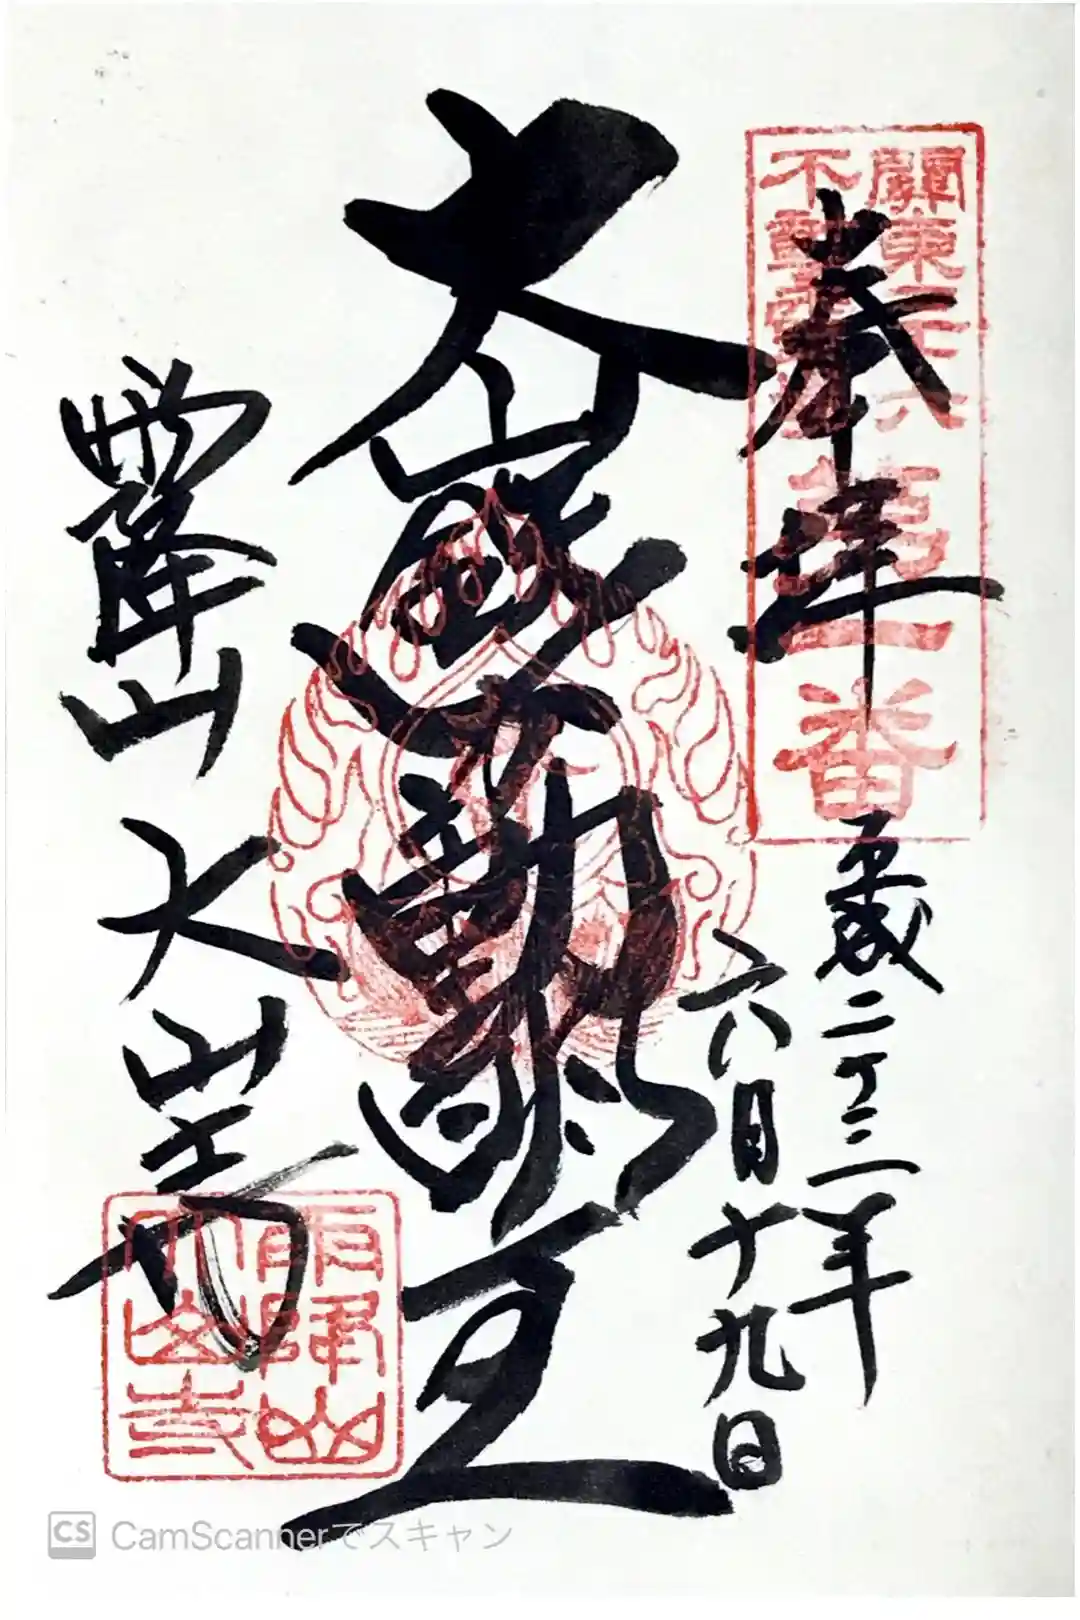 關東三十六
不動霊場
第一番
奉拝
平成二十三年
六月十九日
大
不動明王
雨降山大山寺
雨降山
大山寺
CS CamScannerでスキャン